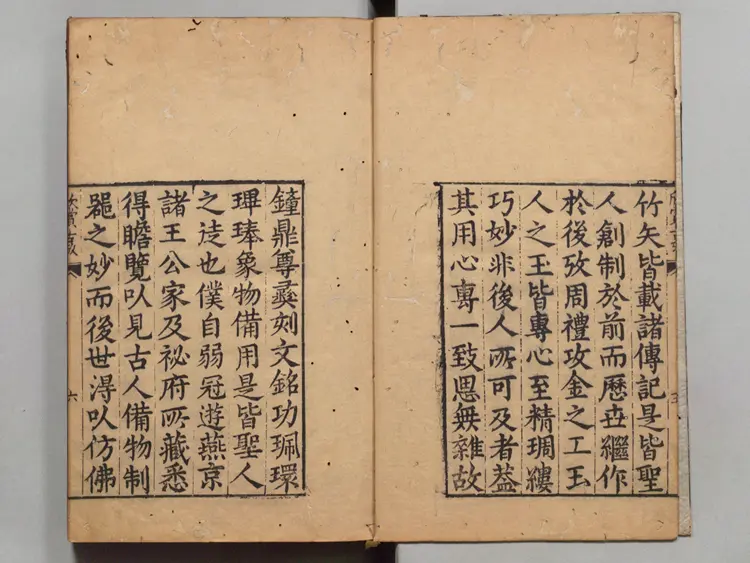 竹矢皆載諸傳記是皆聖
人創制於前而歷丗繼作
於後攷周禮攻金之工玉
人之玉皆專心至精琱鏤
巧妙非後人所可及者葢
其用心專一致思無雜故
鐘鼎尊彛刻文銘功珮環
琕琫象物備用是皆聖人
之迹也僕自弱冠遊燕京
諸王公家及祕府所藏悉
得瞻覽以見古人備物制
噐之妙而後世得以仿佛
六